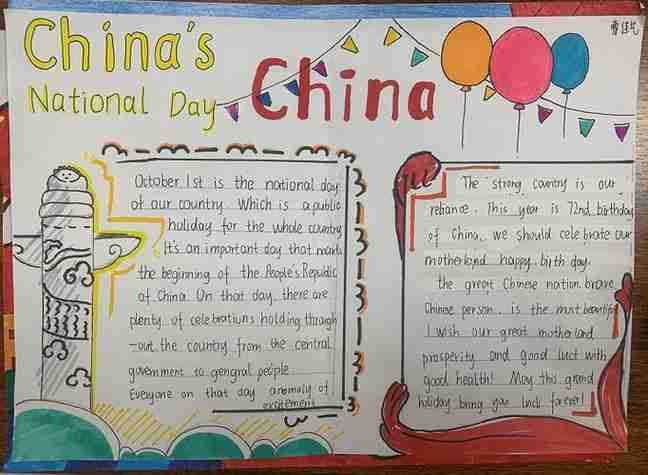 China's
National Day
China
October 1st is the national day
of our country. Which is a public
holiday for the whole country
It's an important day that marks
the beginning of the People's Republic
of China. On that day, there are
plenty of celebrations holding through
-out the country from the central
government to gengral people
Everyone on that day anomaly of
excitement
The strong country is our
reliance. This year is 72nd birthday
of China. we should celebrate our
motherland happy birth day.
the great Chinese nation. brave
Chinese person. is the must beautiful
I wish our great motherland
prosperity and good luct with
good health! May this grand
holiday bring you luck forever!